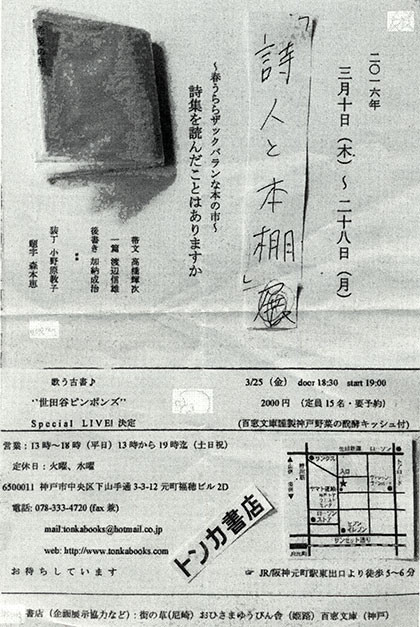 二〇一六年
三月十日（木）〜二十八日（月）
「詩人と本棚」展
〜春うららザックバランな本の市〜
詩集を読んだことはありますか
帯文 高橋輝次
一篇 渡辺信雄
後書き 加納成治
装丁 小野原教子
題字 森本恵
歌う古書♪
"世田谷ピンポンズ"
Special LIVE! 決定
3/25（金） door 18:30 start 19:00
2000 円（定員 15 名・要予約）
(百窓文庫謹製神戸野菜の醗酵キッシュ付)
営業：13時〜18時（平日）13時から19時迄（土日祝）
定休日：火曜、水曜
6500011 神戸市中央区下山手通 3-3-12 元町福穂ビル 2D
電話: 078-333-4720 (fax 兼)
mail:tonkabooks@hotmail.co.jp
web: http://www.tonkabooks.com
お待ちしています
トンカ書店
サンクス
ローソン
入口
ヤマト運輸
ローソン
ストア
セブン
イレブン
サンセット通り
☞ JR/阪神元町駅東出口より徒歩 5〜6分
書店（企画展示協力など）: 街の草(尼崎) おひさまゆうびん舎（姫路）百窓文庫（神戸）